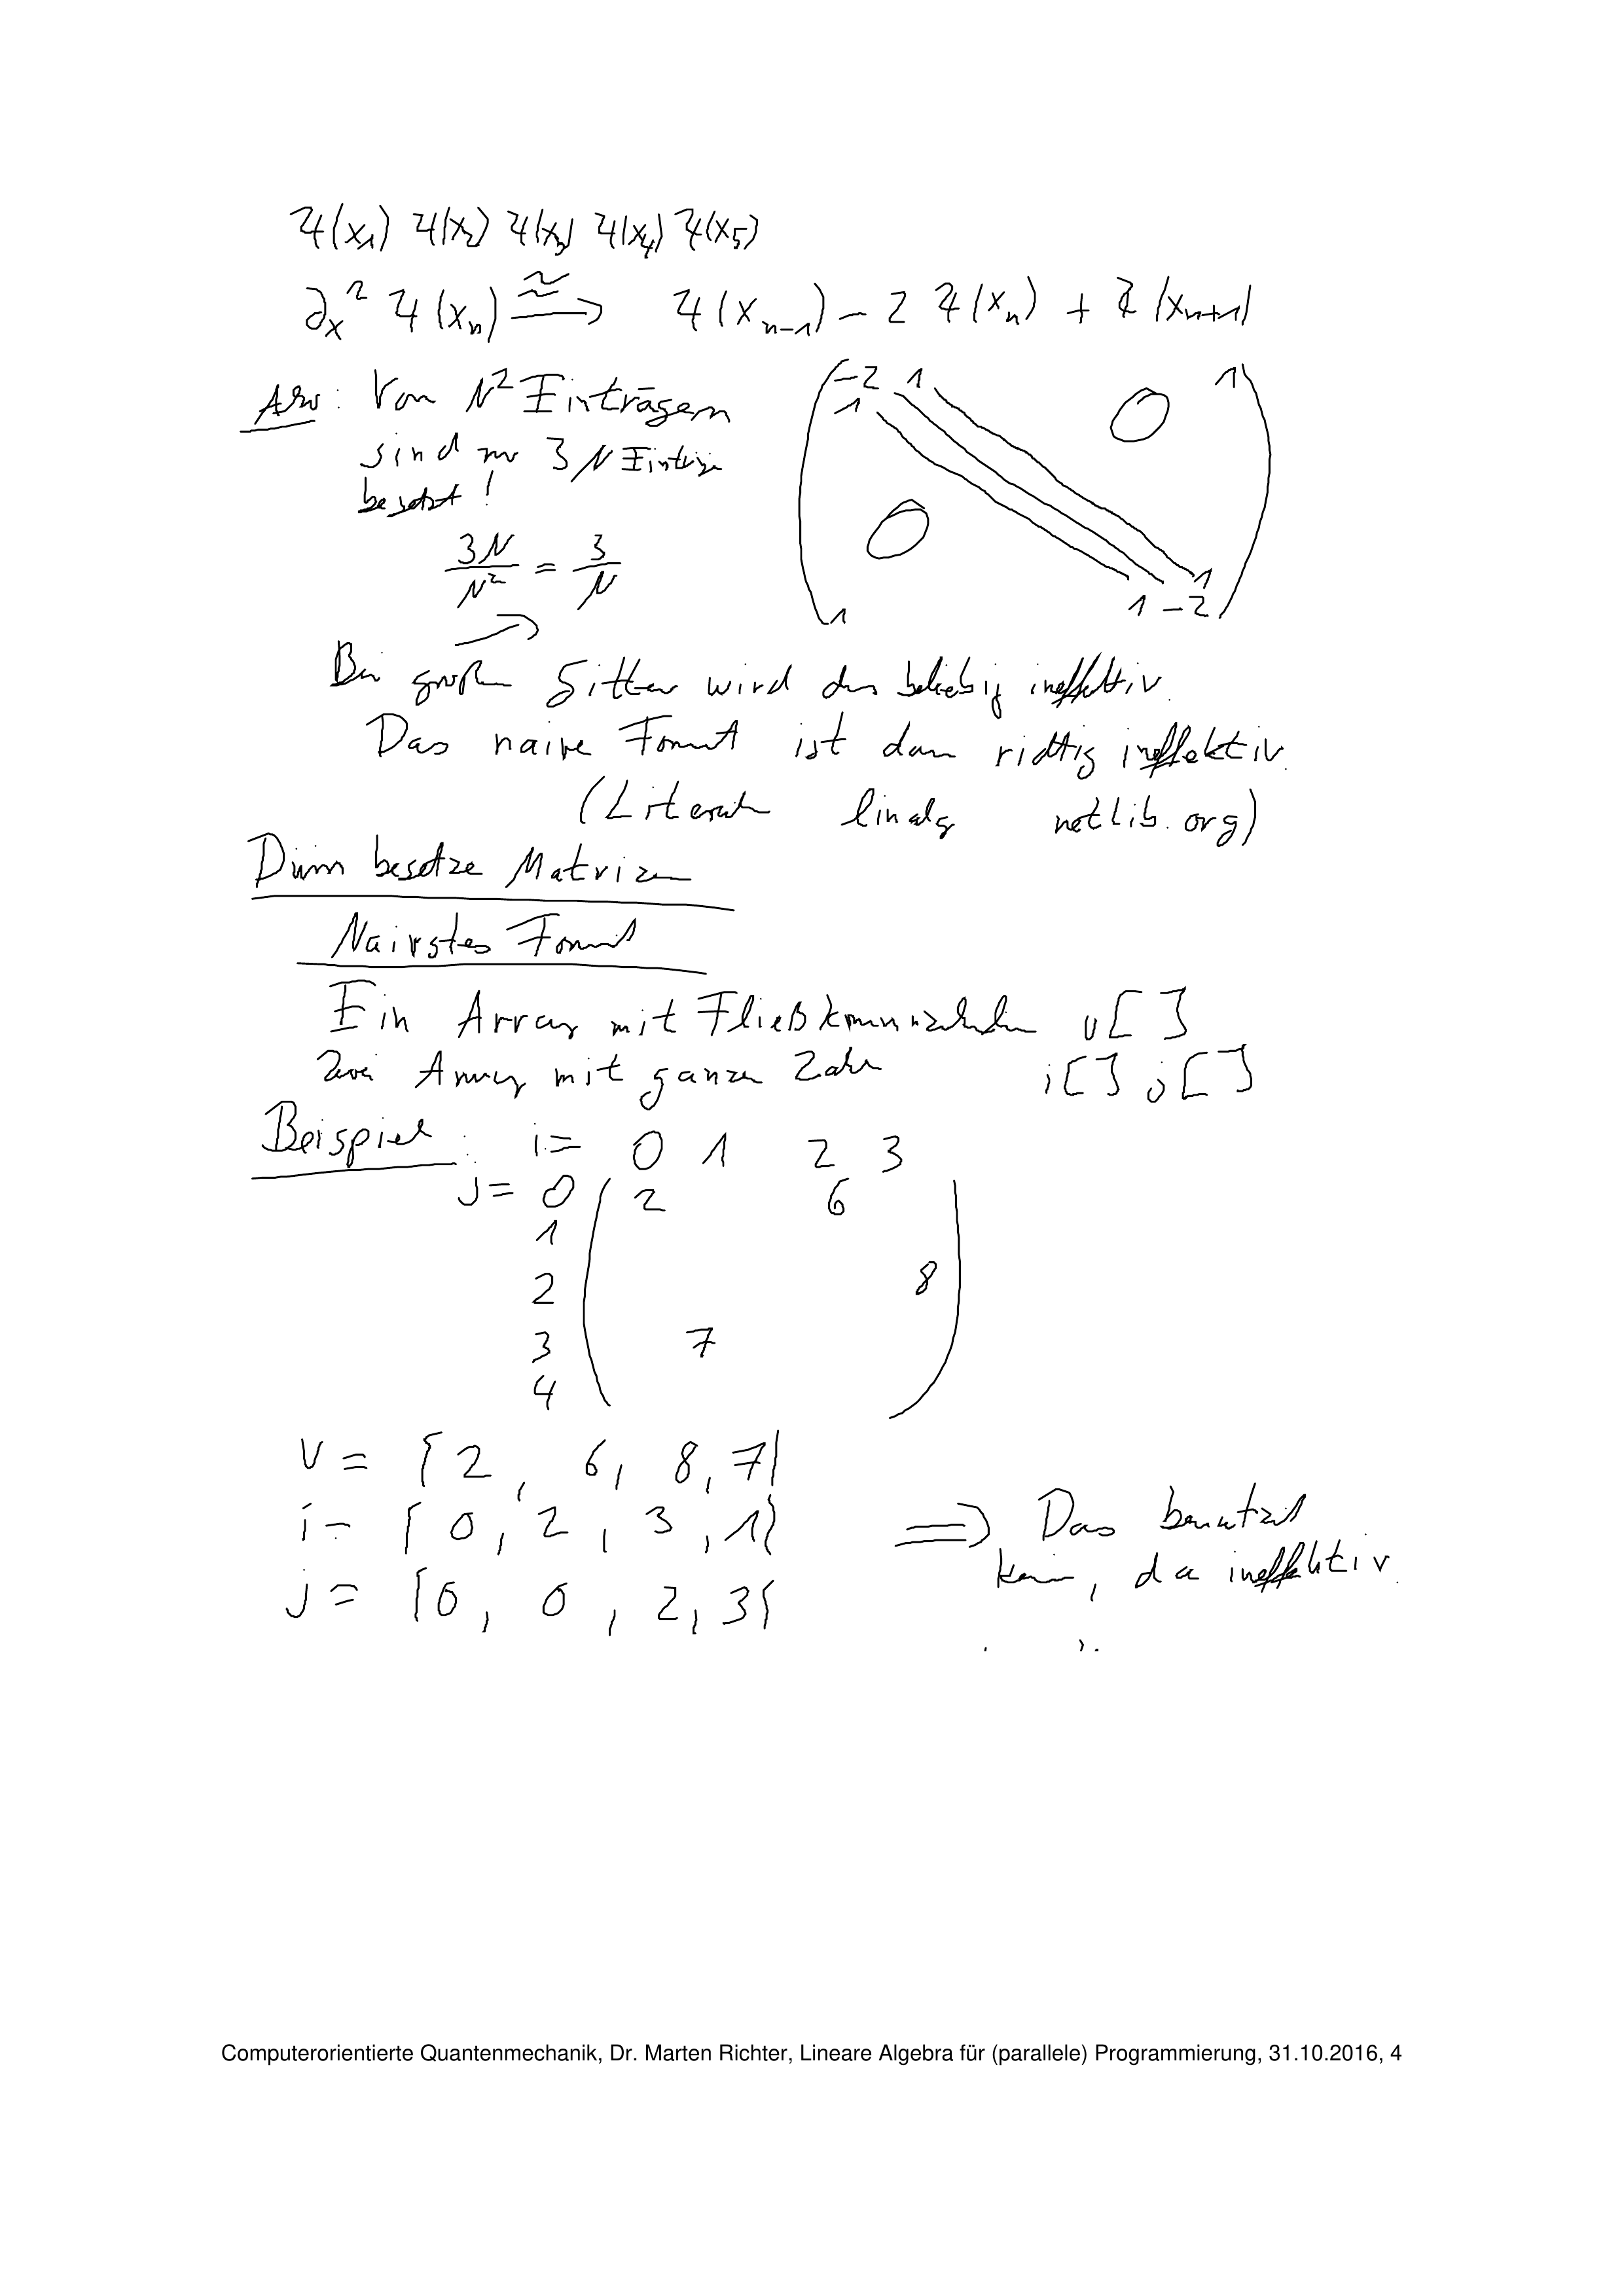 Ψ(x₁) Ψ(x₂) Ψ(x₃) Ψ(x₄) Ψ(x₅)
∂ₓ² Ψ(xₙ) ≈⟹ Ψ(xₙ₋₁) − 2 Ψ(xₙ) + Ψ(xₙ₊₁)
Von N² Einträgen
sind nur 3 N Einträge
besetzt!
3N/N² = 3/N
-2 1 0 1
1
0 1
1 1 -2
Bei großen Gitter wird das beliebig ineffektiv.
Das naive Format ist dann richtig ineffektiv.
(Literatur linalg netlib.org)
Dünn besetze Matrizen
Naivstes Format
Ein Array mit Fließkommazahlen v[ ]
Zwei Array mit ganzen Zahlen i[ ] j[ ]
Beispiel: i= 0 1 2 3
j= 0 2 6
1
2 8
3 7
4
v = {2, 6, 8, 7}
i = {0, 2, 3, 1}
j = {0, 0, 2, 3}
⟹ Das benutzt
kein, da ineffektiv.
Computerorientierte Quantenmechanik, Dr. Marten Richter, Lineare Algebra für (parallele) Programmierung, 31.10.2016, 4